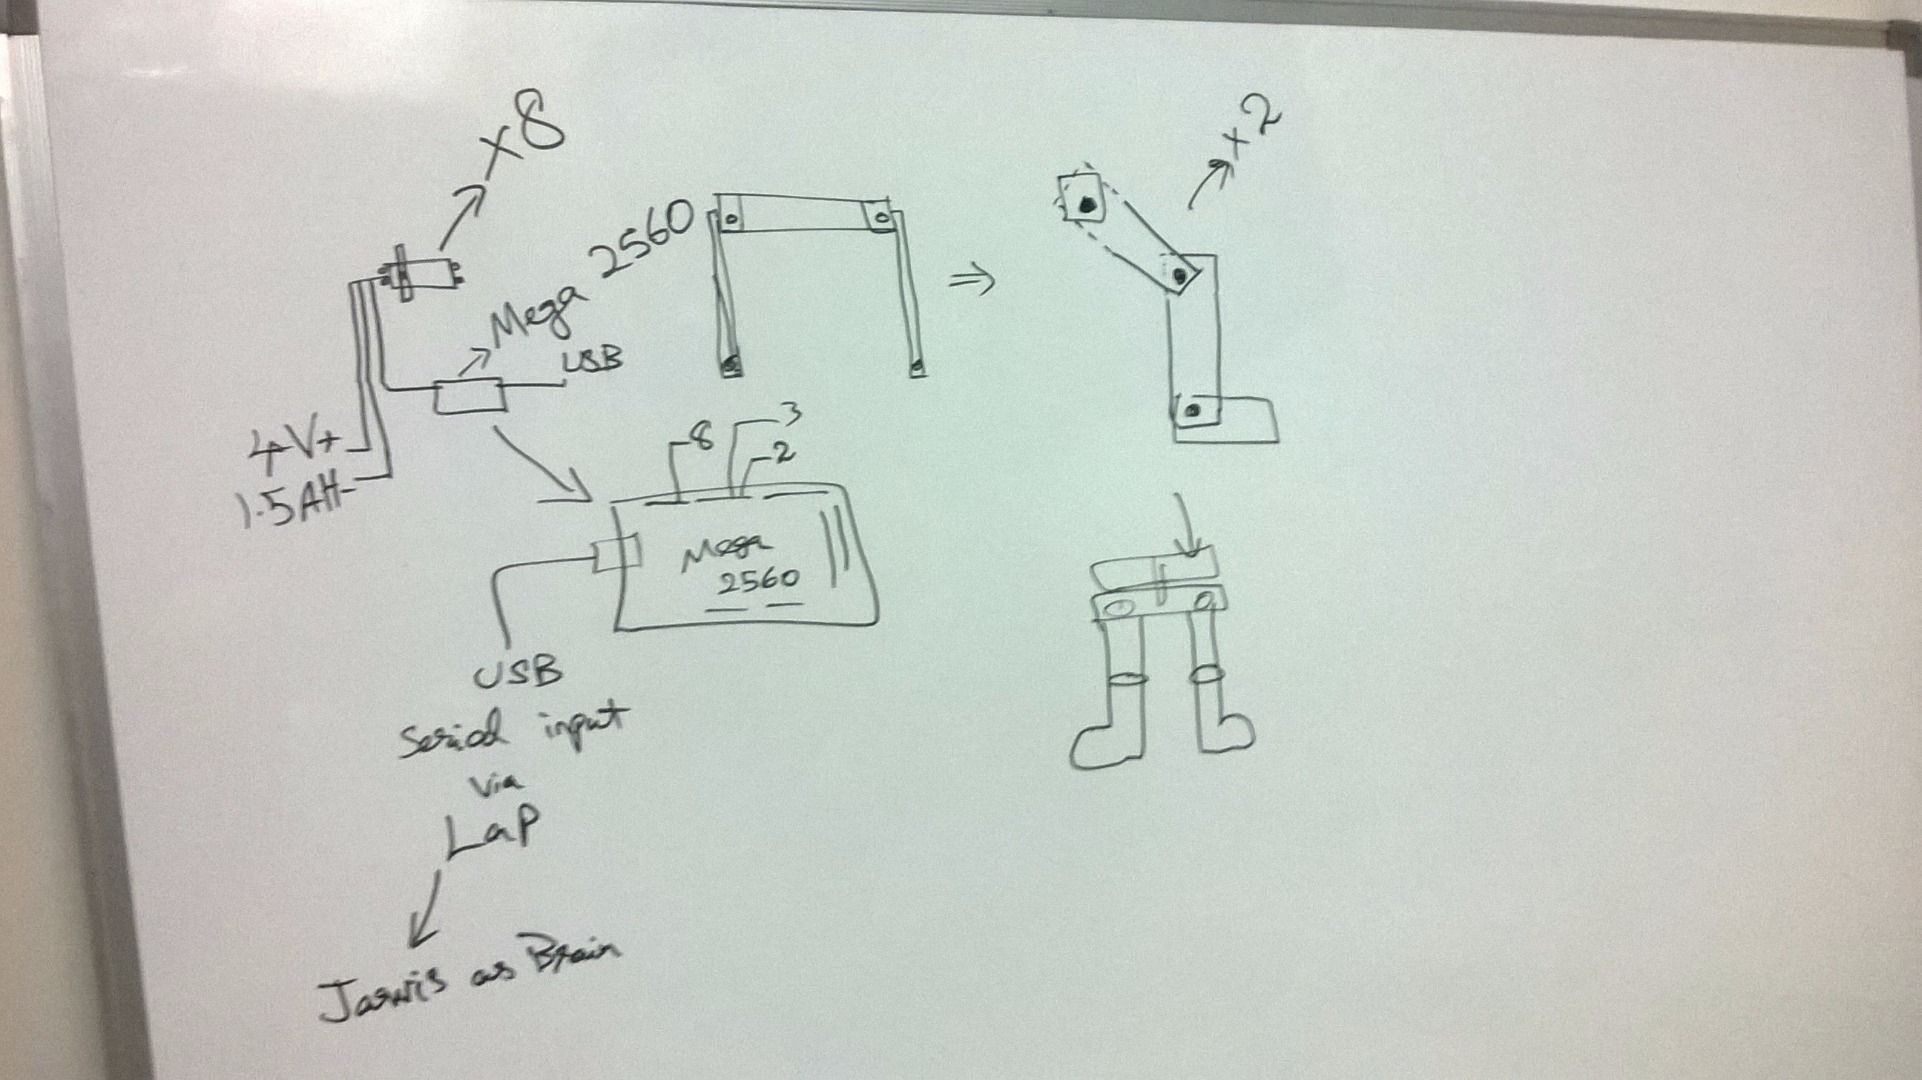 ×8
Mega 2560
USB
4V+
1.5AH-
8
3
2
Mega
2560
USB
Serial input
via
Lap
Jarvis as Brain
×2